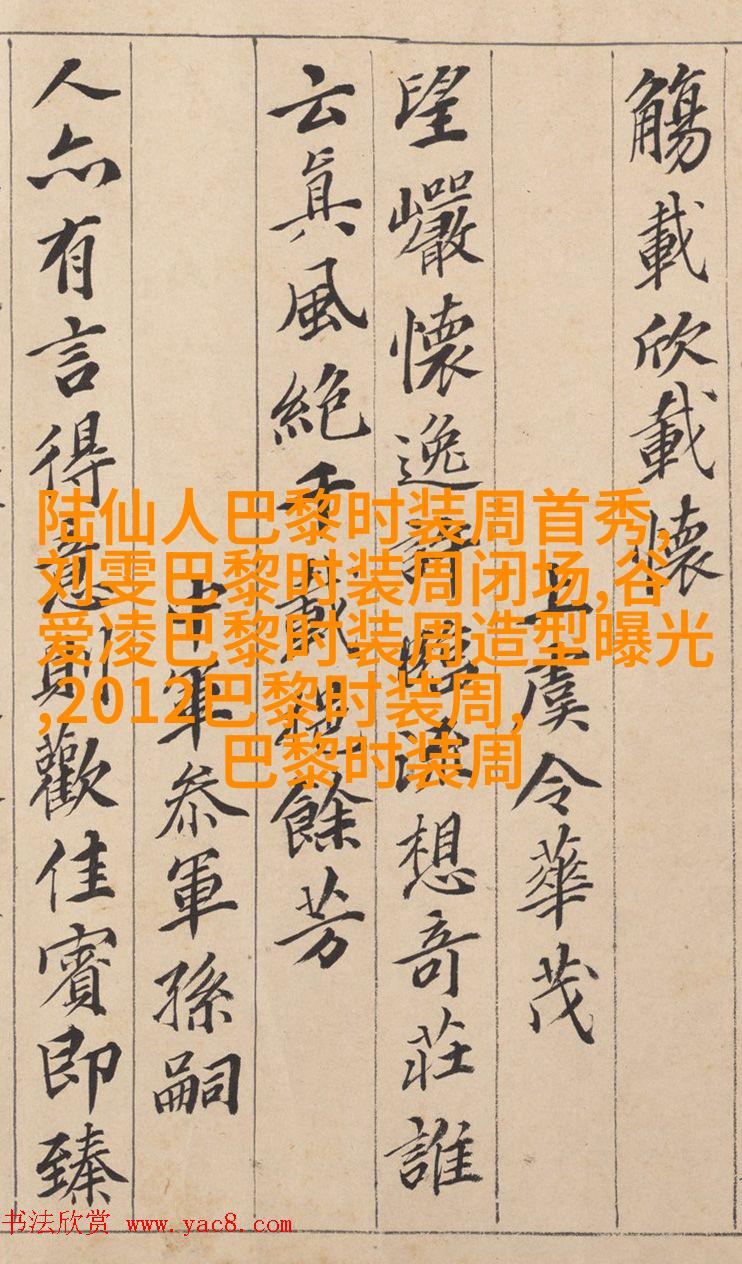 觴載欣載懷
上虞令華茂
望巖懷逸許臨流想奇莊誰
云眞風絶千載挹餘芳
中軍參軍孫嗣
人亦有言得意則歡佳賓即臻
陆仙人巴黎时装周首秀,
刘雯巴黎时装周闭场,谷
爱凌巴黎时装周造型曝光
,2012巴黎时装周,
巴黎时装周
书法欣赏 www.yac8.com